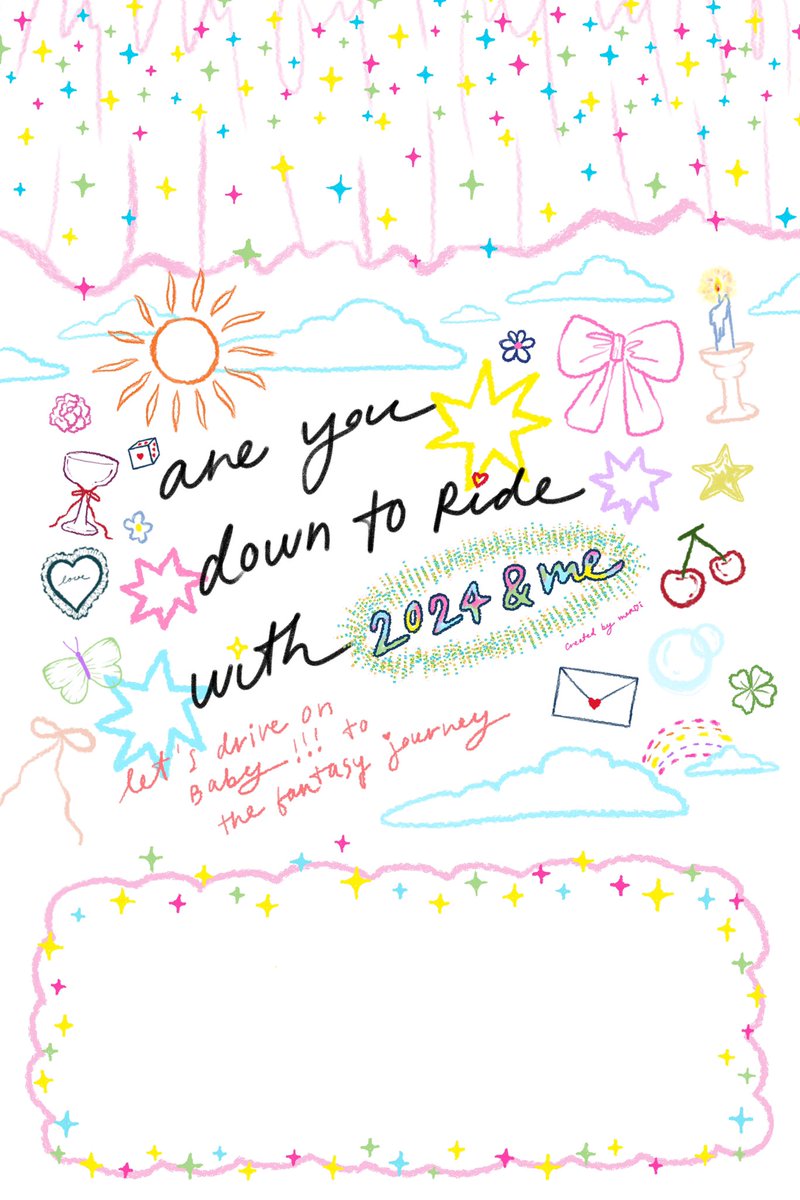 are you
down to Ride
with 2024 & me
created by menoi
let's drive on
Baby !!! to
the fantasy journey
love